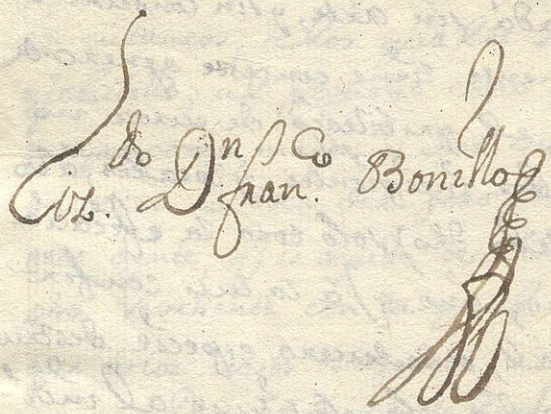 Liz.do Dn franco. Bonillo